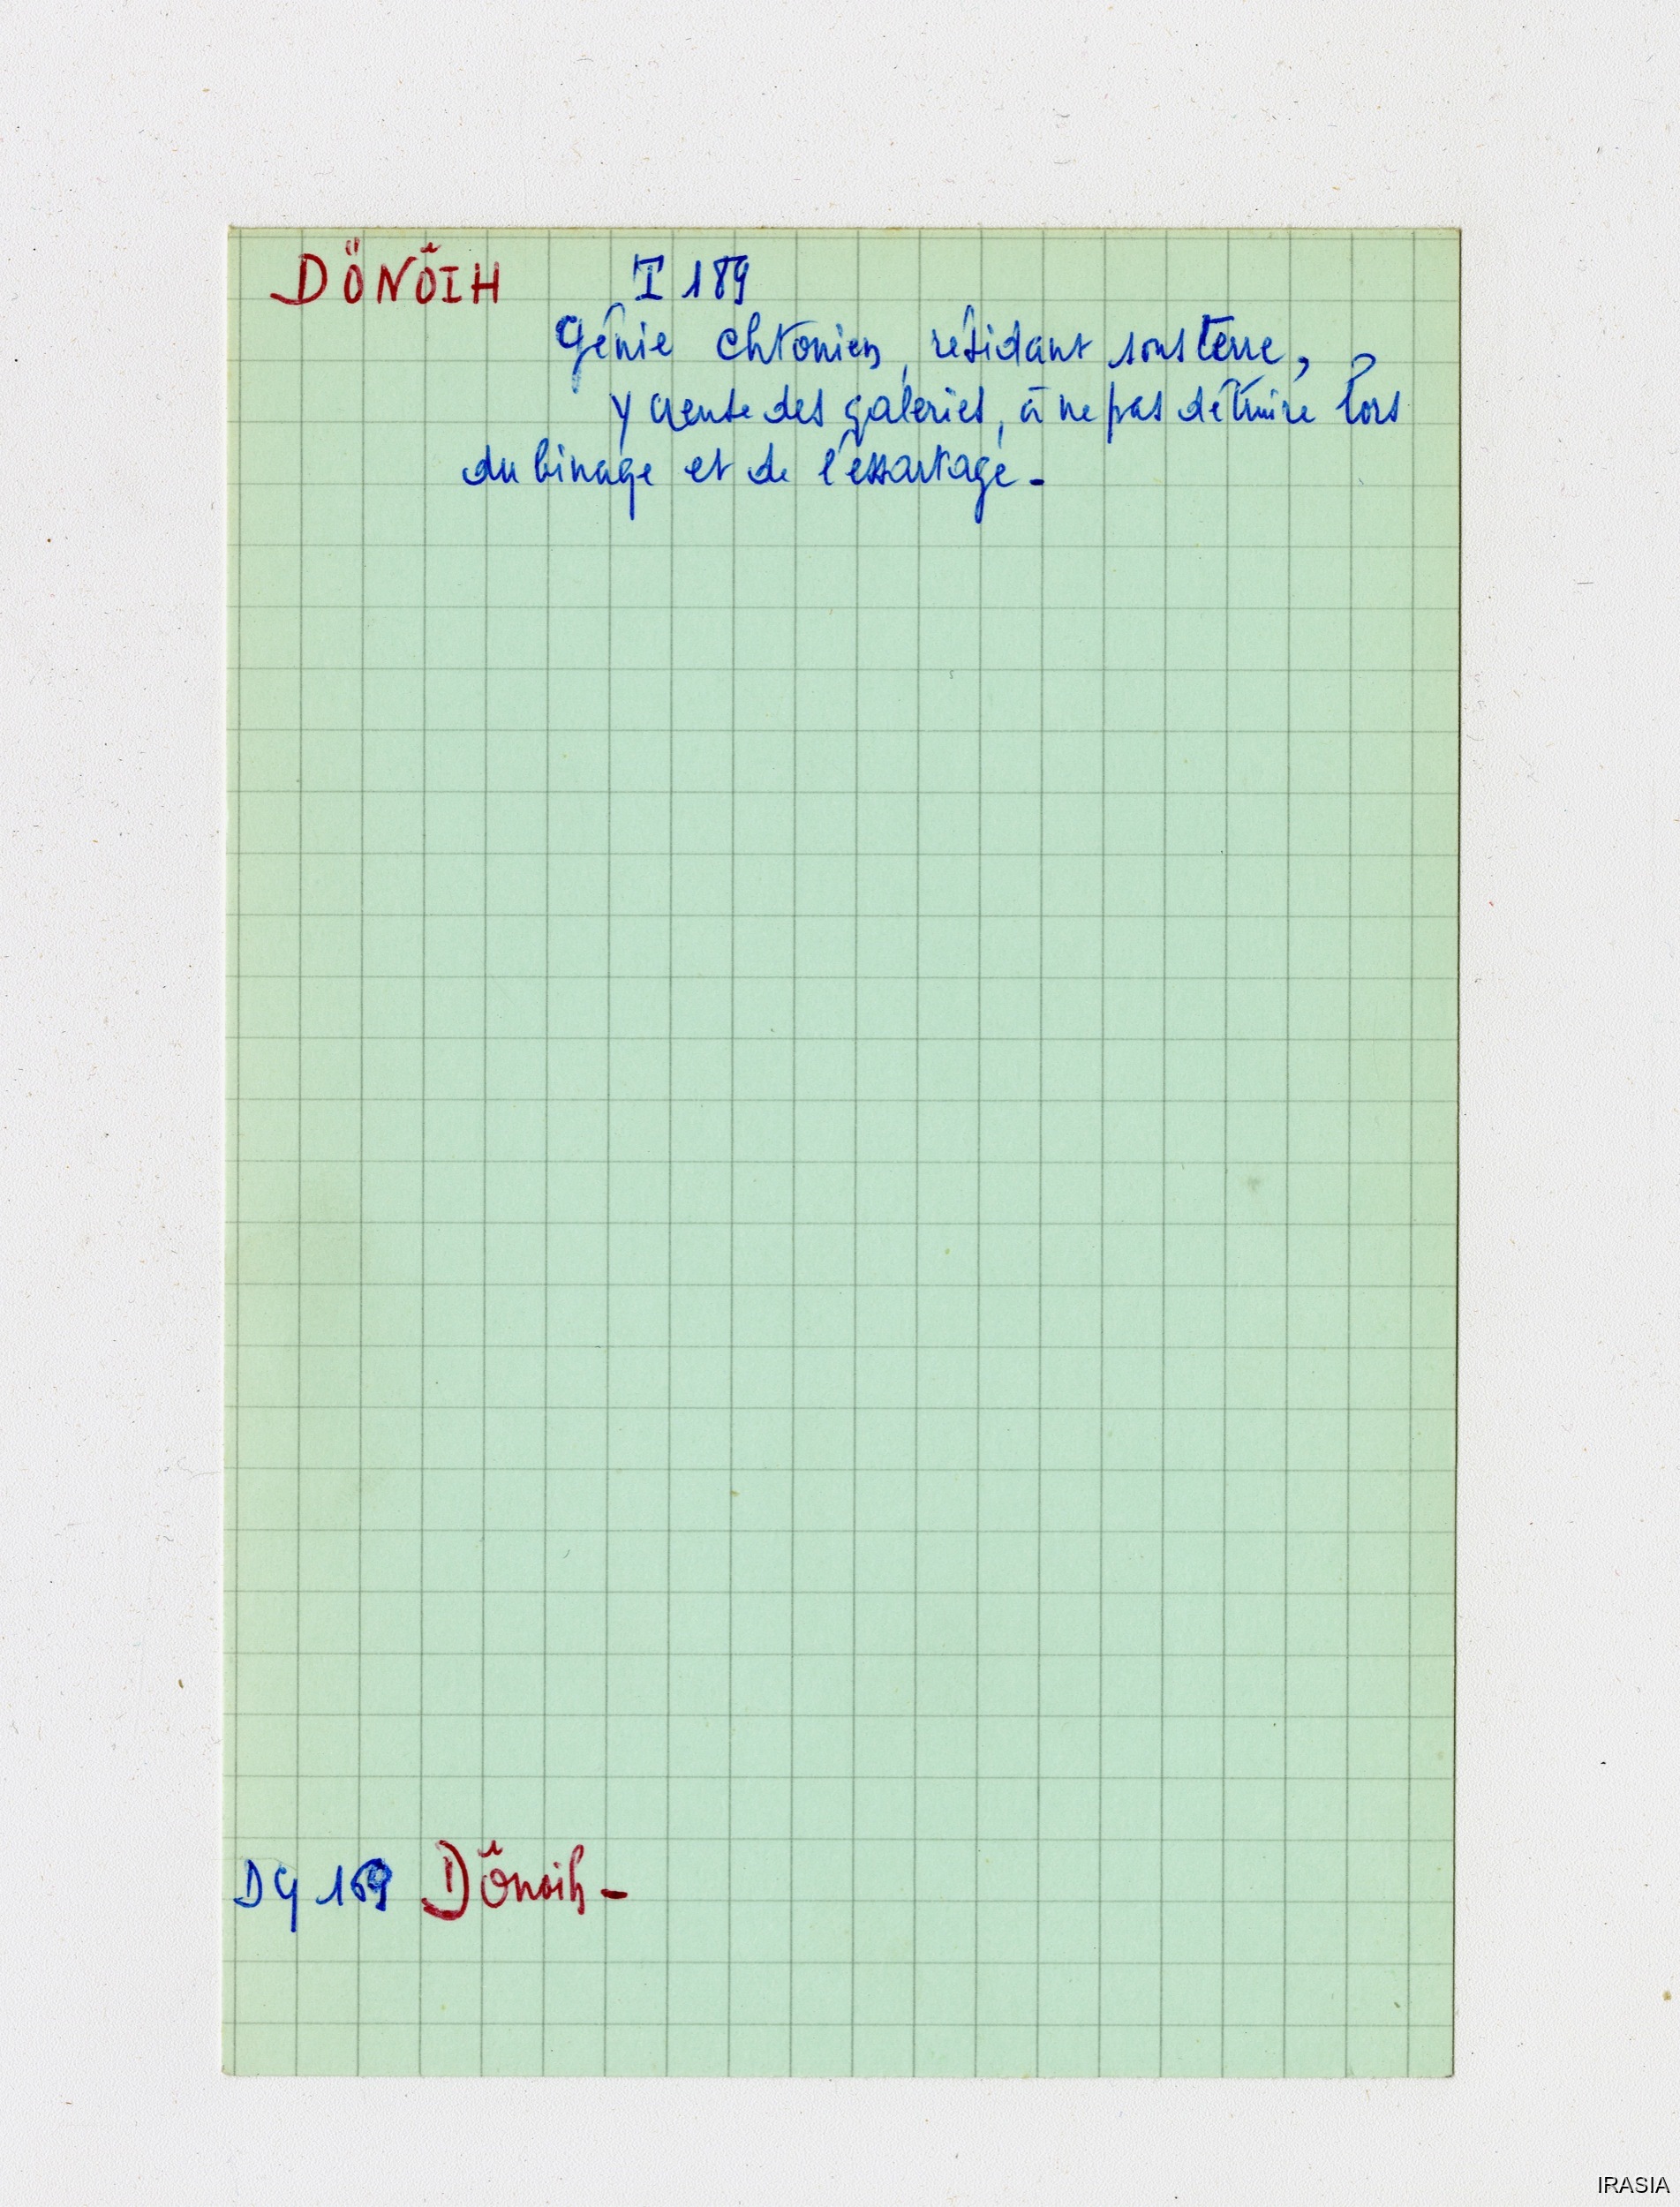 DÖNŎIH I 189
Génie chtonien, résidant sous terre,
y creuse des galeries, à ne pas détruire lors
du binage et de l'essartage -
DG 169 Dŏnoih -
IRASIA